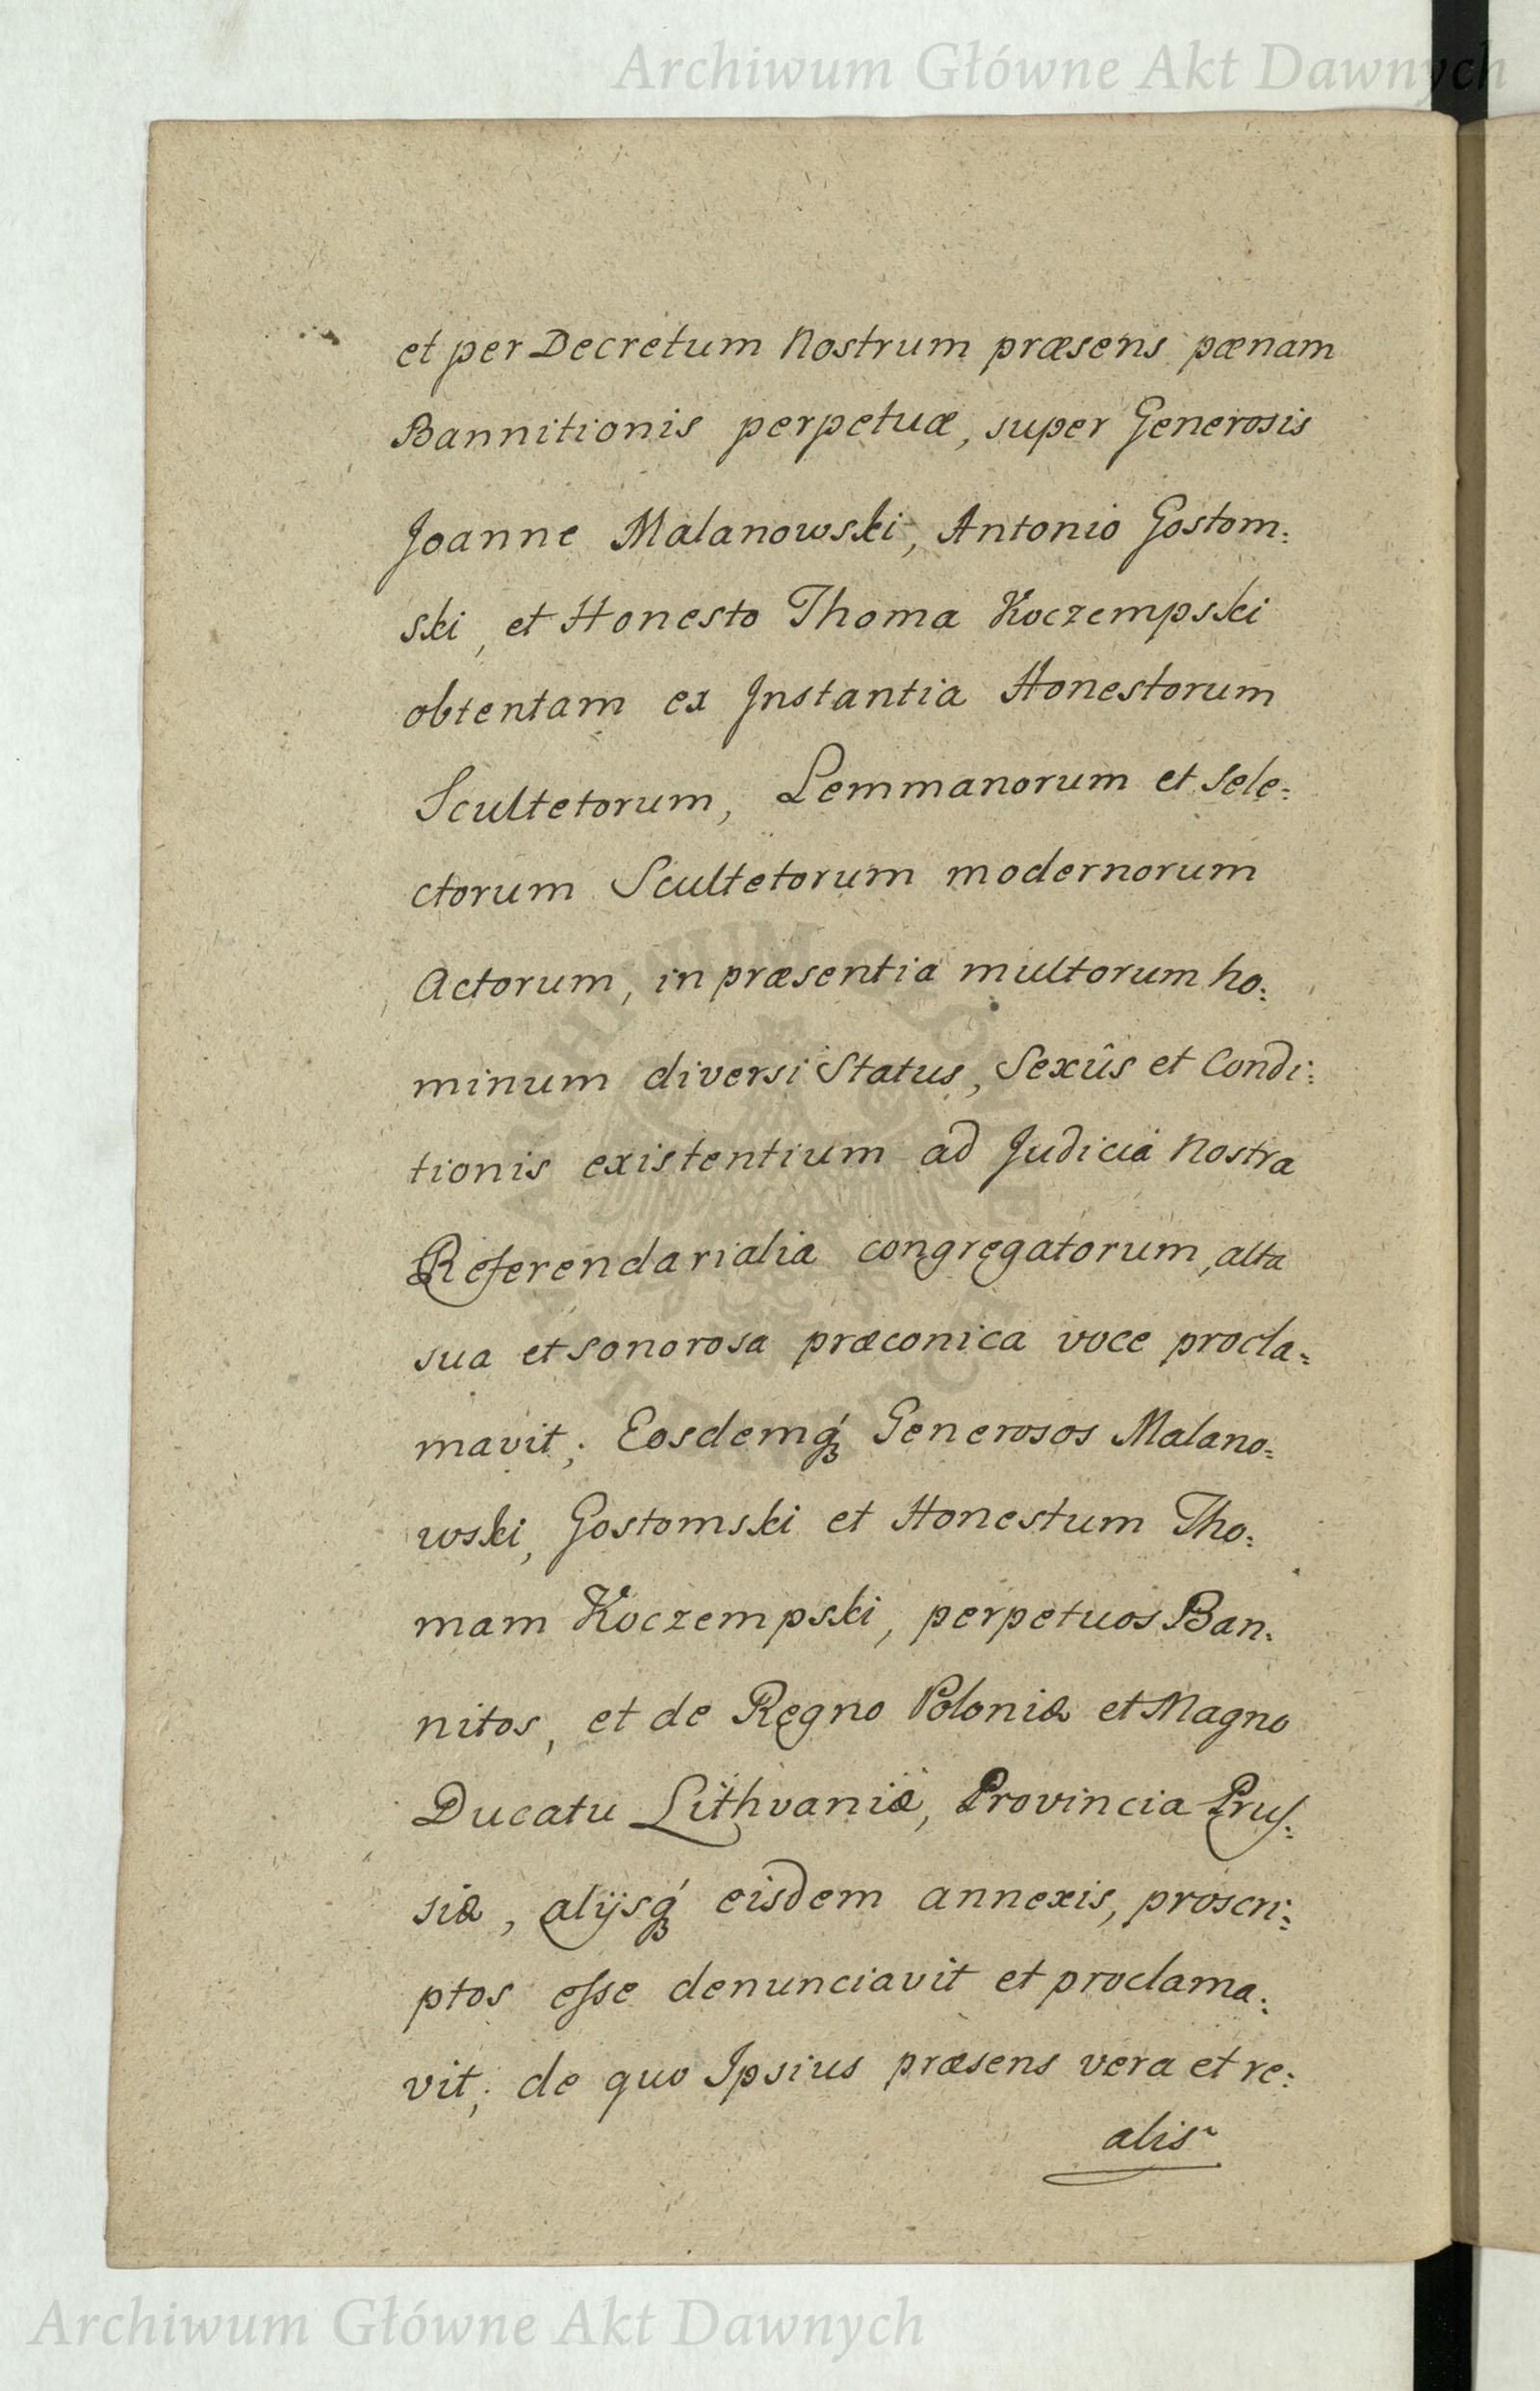 Archiwum Główne Akt Dawnych
et per Decretum Nostrum præsens pœnam
Bannitionis perpetuæ, super Generosis
Joanne Malanowski, Antonio Gostom:
ski, et Honesto Thoma Koczempski
obtentam ex Instantia Honestorum
Scultetorum, Lemmanorum et Sele:
ctorum Scultetorum modernorum
Actorum, in præsentia multorum ho:
minum diversi Status, Sexûs et Condi:
tionis existentium ad Judicia Nostra
Referendarialia congregatorum, alta
sua et sonorosa præconica voce procla=
mavit; Eosdemq́ꝫ Generosos Malano=
wski, Gostomski et Honestum Tho:
mam Koczempski, perpetuos Ban:
nitos, et de Regno Poloniæ et Magno
Ducatu Lithvaniæ, Provincia Pruſ:
siæ, alijsq́ꝫ eisdem annexis, proscri:
ptos eſse denunciavit et proclama:
vit; de quo Ipsius præsens vera et re:
alis
Archiwum Główne Akt Dawnych